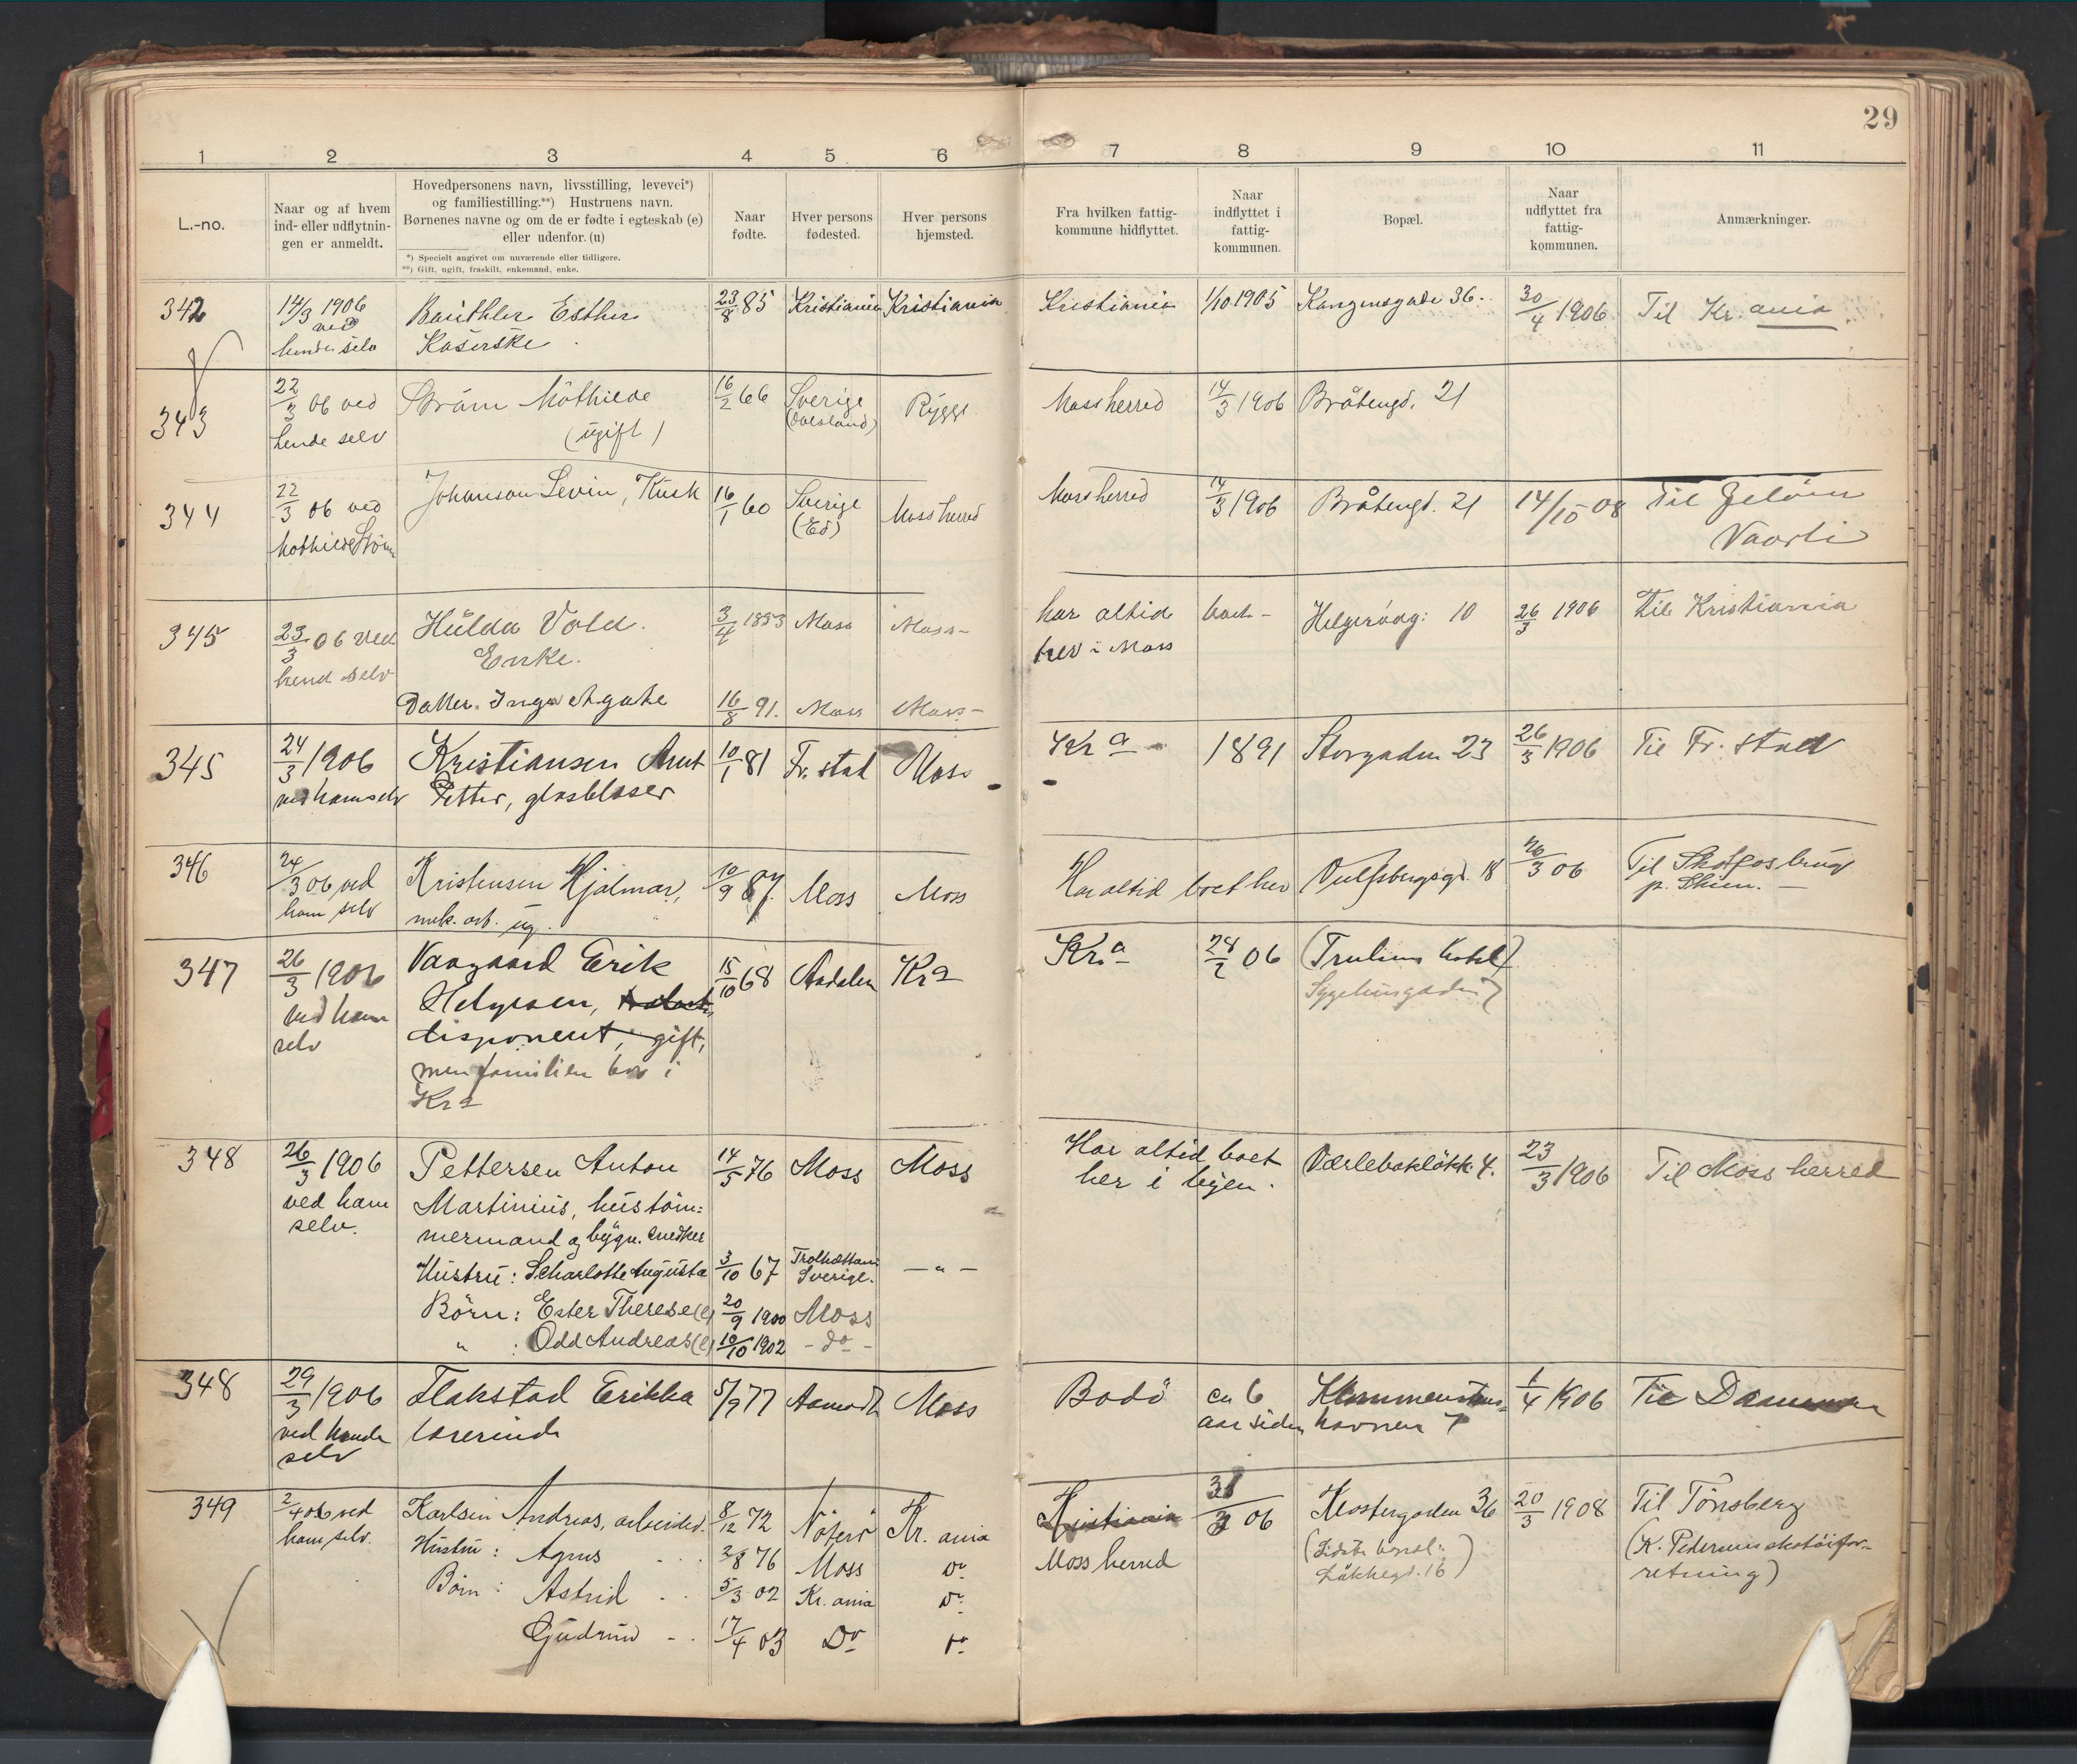 29
1 2 3 4 5 6 7 8 9 10 11
L.-no.
Naar og af hvem
ind- eller udflytnin-
gen er anmeldt.
Hovedpersonens navn, livsstilling, levevei*)
og familiestilling.**) Hustruens navn.
Børnenes navne og om de er fødte i egteskab (e)
eller udenfor. (u)
*) Specielt angivet om nuværende eller tidligere.
**) Gift, ugift, fraskilt, enkemand, enke.
Naar
fødte.
Hver persons
fødested.
Hver persons
hjemsted.
Fra hvilken fattig-
kommune hidflyttet.
Naar
indflyttet i
fattig-
kommunen.
Bopæl.
Naar
udflyttet fra
fattig-
kommunen.
Anmærkninger.
342 14/3 1906 Esther 23/8 85 Kristiania Kristiania Kristiania 1/10 1905 Kongensgade 36. 30/4 1906 Til Kr.ania
ved
hende selv Kaserske
343 22/3 06 ved Strøm Mathilde 16/2 66 Sverige Rygge Mossherred 14/3 1906 Bråtengd. 21
hende selv (ugift) (Dalsland)
344 22/3 06 ved Johanson Levin, Kusk 16/1 60 Sverige Moss herred Mossherred 14/3 1906 Bråtengd. 21 14/10 08 Til Jeløen
Mathilde Strøm (Ed) Vaarli
345 23/3 06 ved Hulda Vold. 3/4 1853 Moss Moss- har altid boet- Helgerødg: 10 26/3 1906 Til Kristiania
hend selv Enke. her i Moss
Datter. Inga Agathe 16/8 91. Moss Moss-
345 24/3 1906 Kristiansen Arnt 10/1 81 Fr.stad Moss Kra - 1891 Storgaden 23 26/3 1906 Til Fr. stad
ved ham selv Petter, glasblaser
346 24/3 06 ved Kristensen Hjalmar, 10/9 87. Moss Moss Har altid boet her Vulfsbergsgd. 18 26/3 06 Til Skotfos brug
ham selv mek. arb. ug. p. Skien. -
347 26/3 1906 Vaagaard Erik 15/10 68 Aadalen Kra Kra 28/2 06 (Trulsens hotel)
ved ham Helgesen, Sygehusgaden 7
selv disponent, gift,
men familien bor i
Kra
348 26/3 1906 Pettersen Anton 14/5 76 Moss Moss Har altid boet Værlebakløkk. 4. 23/3 1906 Til Moss herred
ved ham Martinius, hustøm= her i byen.
selv. mermand og bygn. snedker
Hustru: S. Charlotte Augusta 3/10 67 Trolhættan - " -
Sverige.
Børn: Ester Therese (e) 20/9 1900 Moss
" : Odd Andreas (e) 10/10 1902 - do -
348 29/3 1906 Flakstad Erikka 5/9 77 Aamodt Moss Bodø ca 6 1/4 1906 Til
ved hende lærerinde aar siden havnen 7
selv
349 2/4 06 ved Karlsen Andreas, arbeider. 8/12 72 Nøterø Kr. ania Kristiania 31/3 06 Klostergaden 36 20/3 1908 Til Tønsberg
ham selv. Hustru: Agnes 2/8 76 Moss Do Moss herred (Sidste bopæl: (K. Pedersens skotøifor-
Børn: Astrid 5/3 02 Kr. ania Do Løkkegt. 16) retning)
Gudrun 17/4 03 Do Do